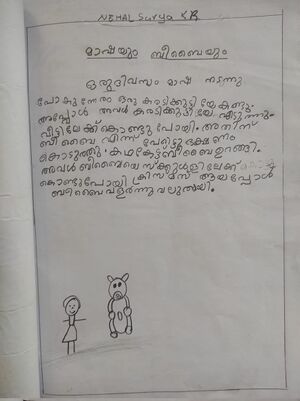 NEHAL Surya K R
മാഷയും ബീബൈയും
ഒരുദിവസം മാഷ നടന്നു
പോകുന്നേരം ഒരു കരടിക്കുട്ടിയേകണ്ടു.
അപ്പോൾ അവൾ കരടിക്കുട്ടിയേ എടുത്തു
വീട്ടിലേക്ക് കൊണ്ടു പോയി. അതിന്
ബീബൈ എന്ന് പേരിട്ടു ഭക്ഷണം
കൊടുത്തു. കഥകേട്ട് ബീബൈ ഉറങ്ങി.
അവൾ ബീബൈയെ സ്ക്കൂളിലേക്ക്
കൊണ്ടുപോയി ക്രിസ്മസ് ആയപ്പോൾ
ബീബൈവളർന്നു വലുതായി.